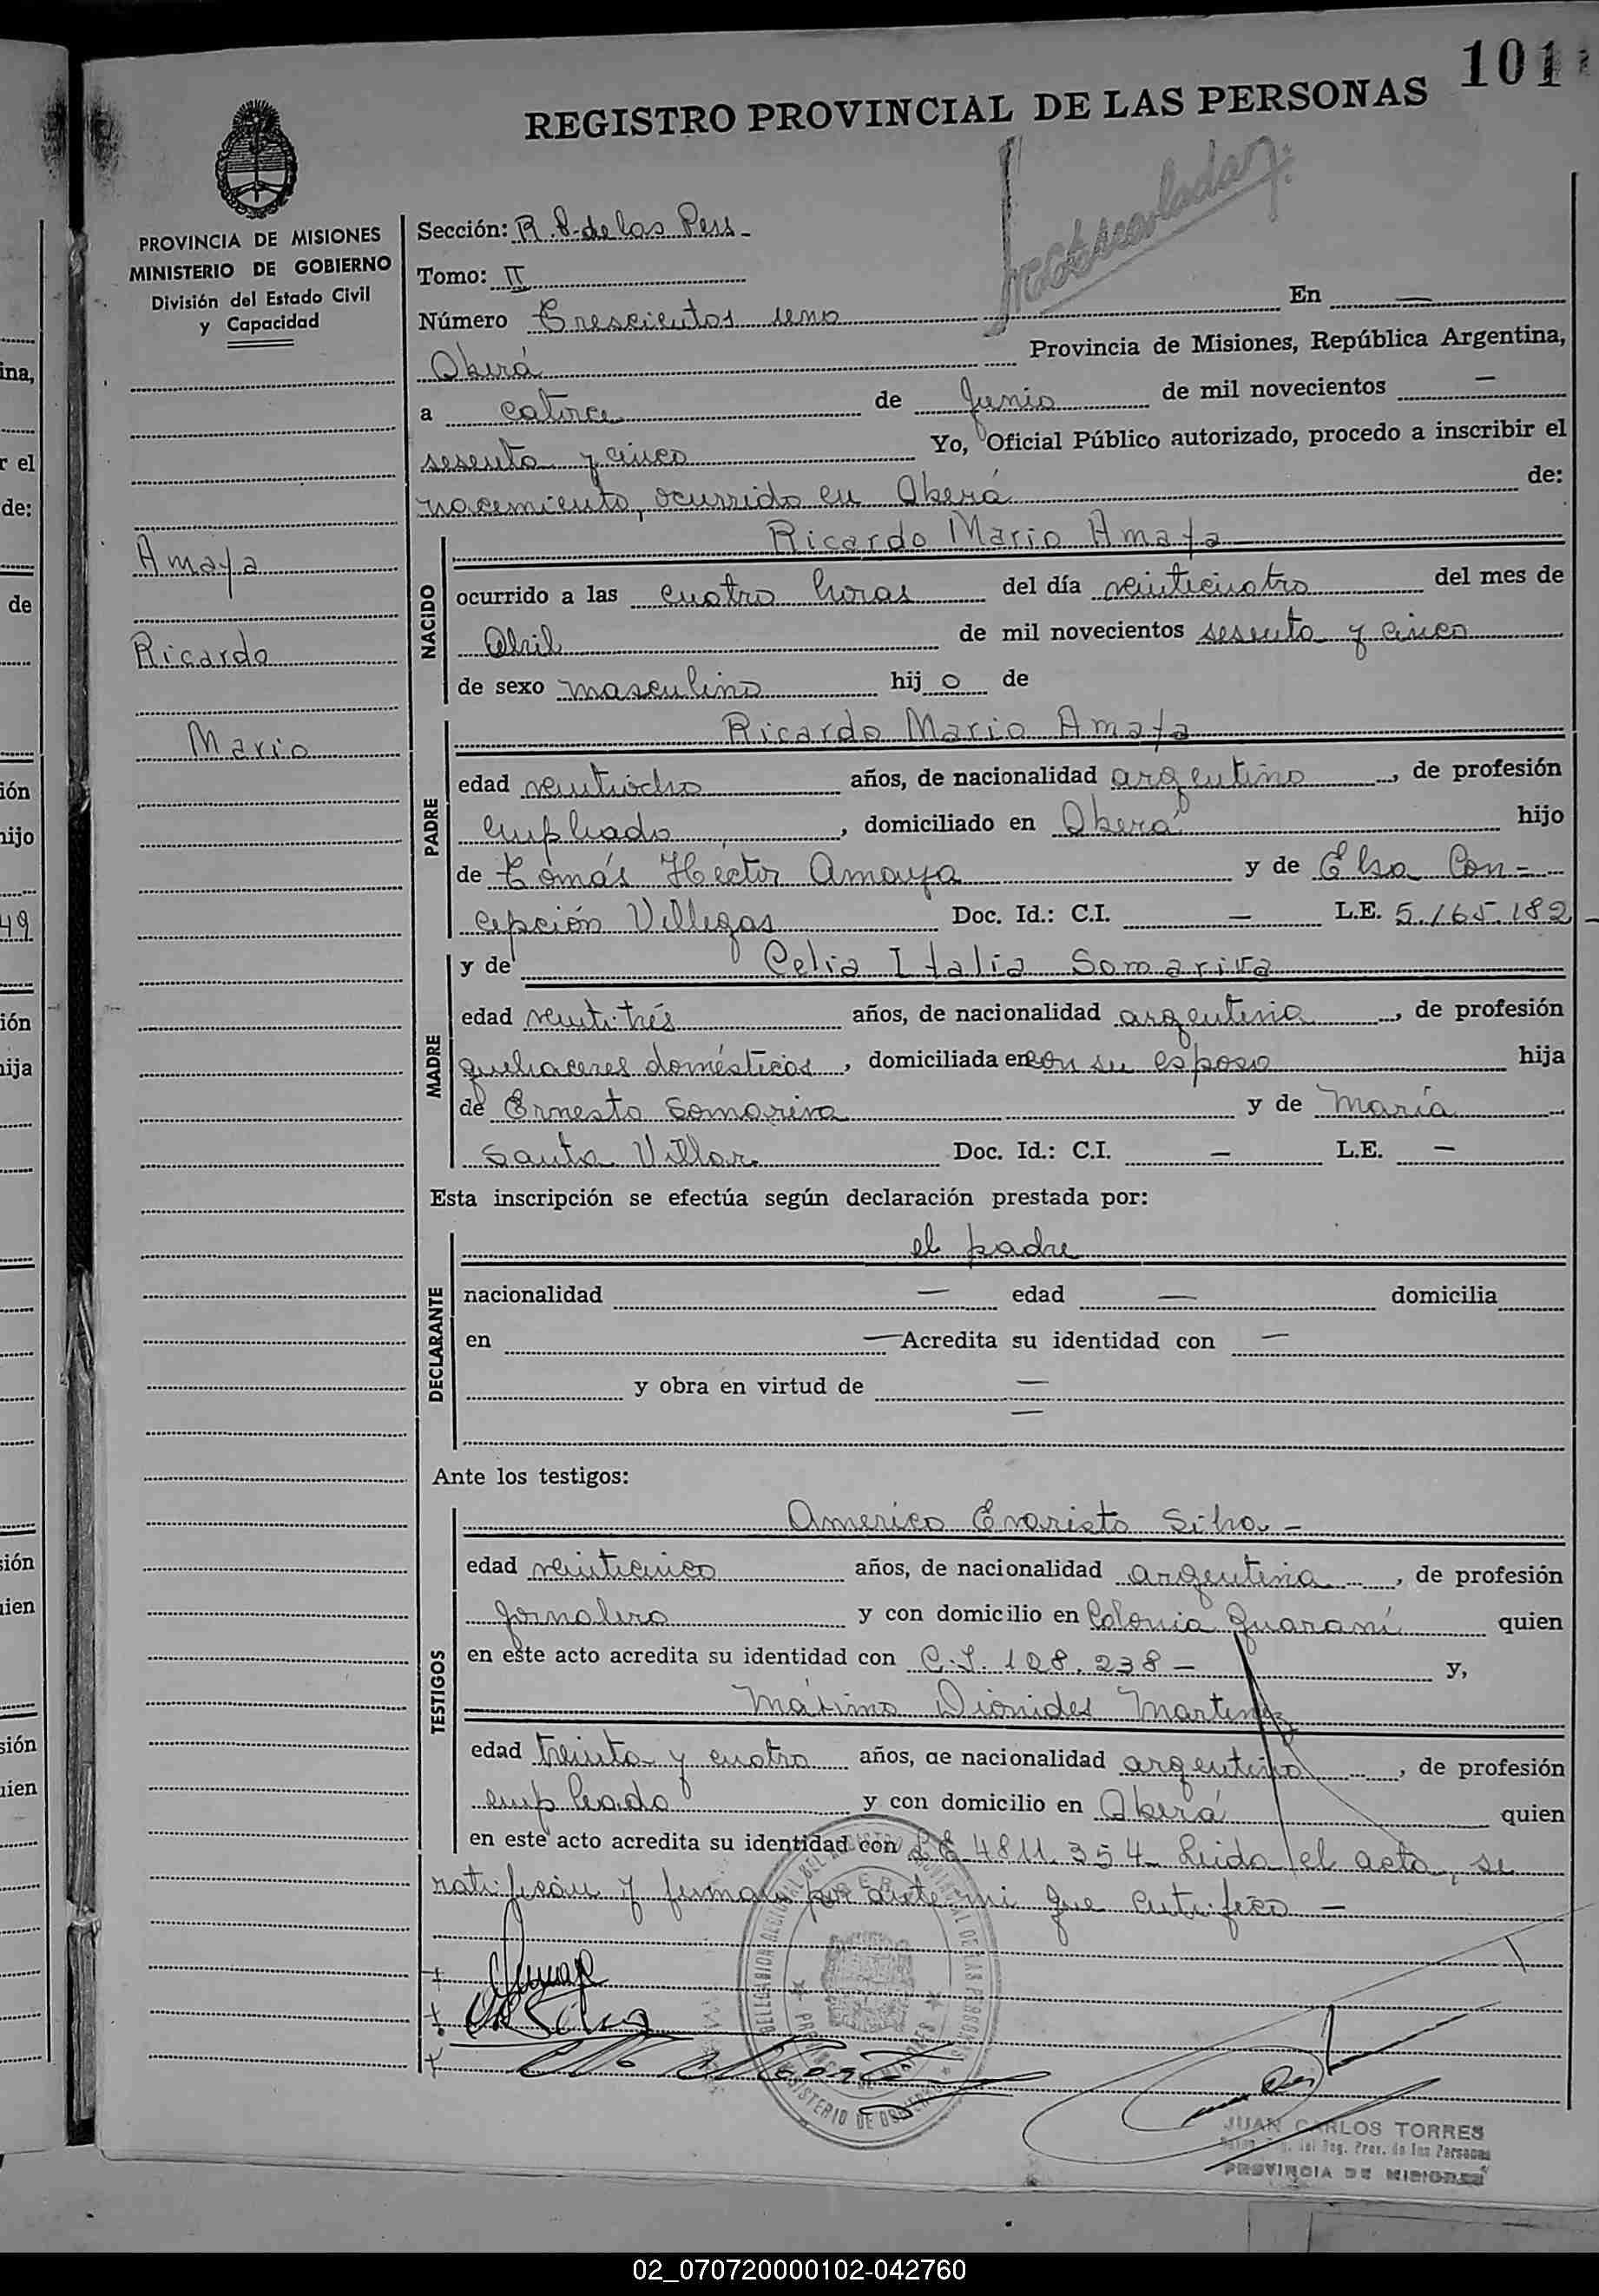 101
REGISTRO PROVINCIAL DE LAS PERSONAS
PROVINCIA DE MISIONES
MINISTERIO DE GOBIERNO
División del Estado Civil
y Capacidad
Amaya
Ricardo
Mario
Sección: R. P. de las Pers -
Tomo: II
Número Trescientos uno En —
Oberá Provincia de Misiones, República Argentina,
a catorce de Junio de mil novecientos —
sesenta y cinco Yo, Oficial Público autorizado, procedo a inscribir el
nacimiento, ocurrido en Oberá de:
NACIDO
Ricardo Mario Amaya
ocurrido a las cuatro horas del día veinticuatro del mes de
Abril de mil novecientos sesenta y cinco
de sexo masculino hij o de
PADRE
Ricardo Mario Amaya
edad veintiocho años, de nacionalidad argentino, de profesión
empleado, domiciliado en Oberá hijo
de Tomás Héctor Amaya y de Elsa Con-
cepción Villegas Doc. Id.: C.I. — L.E. 5.165.182 -
MADRE
y de Celia Italia Somariva
edad veintitrés años, de nacionalidad argentina, de profesión
quehaceres domésticos, domiciliada en con su esposo hija
de Ernesto Somariva y de María
Santa Villar Doc. Id.: C.I. — L.E. —
Esta inscripción se efectúa según declaración prestada por:
DECLARANTE
el padre
nacionalidad — edad — domicilia
en — Acredita su identidad con —
y obra en virtud de —
—
Ante los testigos:
TESTIGOS
Americo Evaristo Silva -
edad veinticinco años, de nacionalidad argentina, de profesión
jornalero y con domicilio en Colonia Guaraní quien
en este acto acredita su identidad con C.I. 108.238 - y,
Máximo Diónides Martinez
edad treinta y cuatro años, de nacionalidad argentino, de profesión
empleado y con domicilio en Oberá quien
en este acto acredita su identidad con L E 4811.354 - Leida el acta, se
ratifican y firman por ante mi que certifico —
JUAN CARLOS TORRES
Reg. Prov. de las Personas
PROVINCIA DE MISIONES
02_070720000102-042760